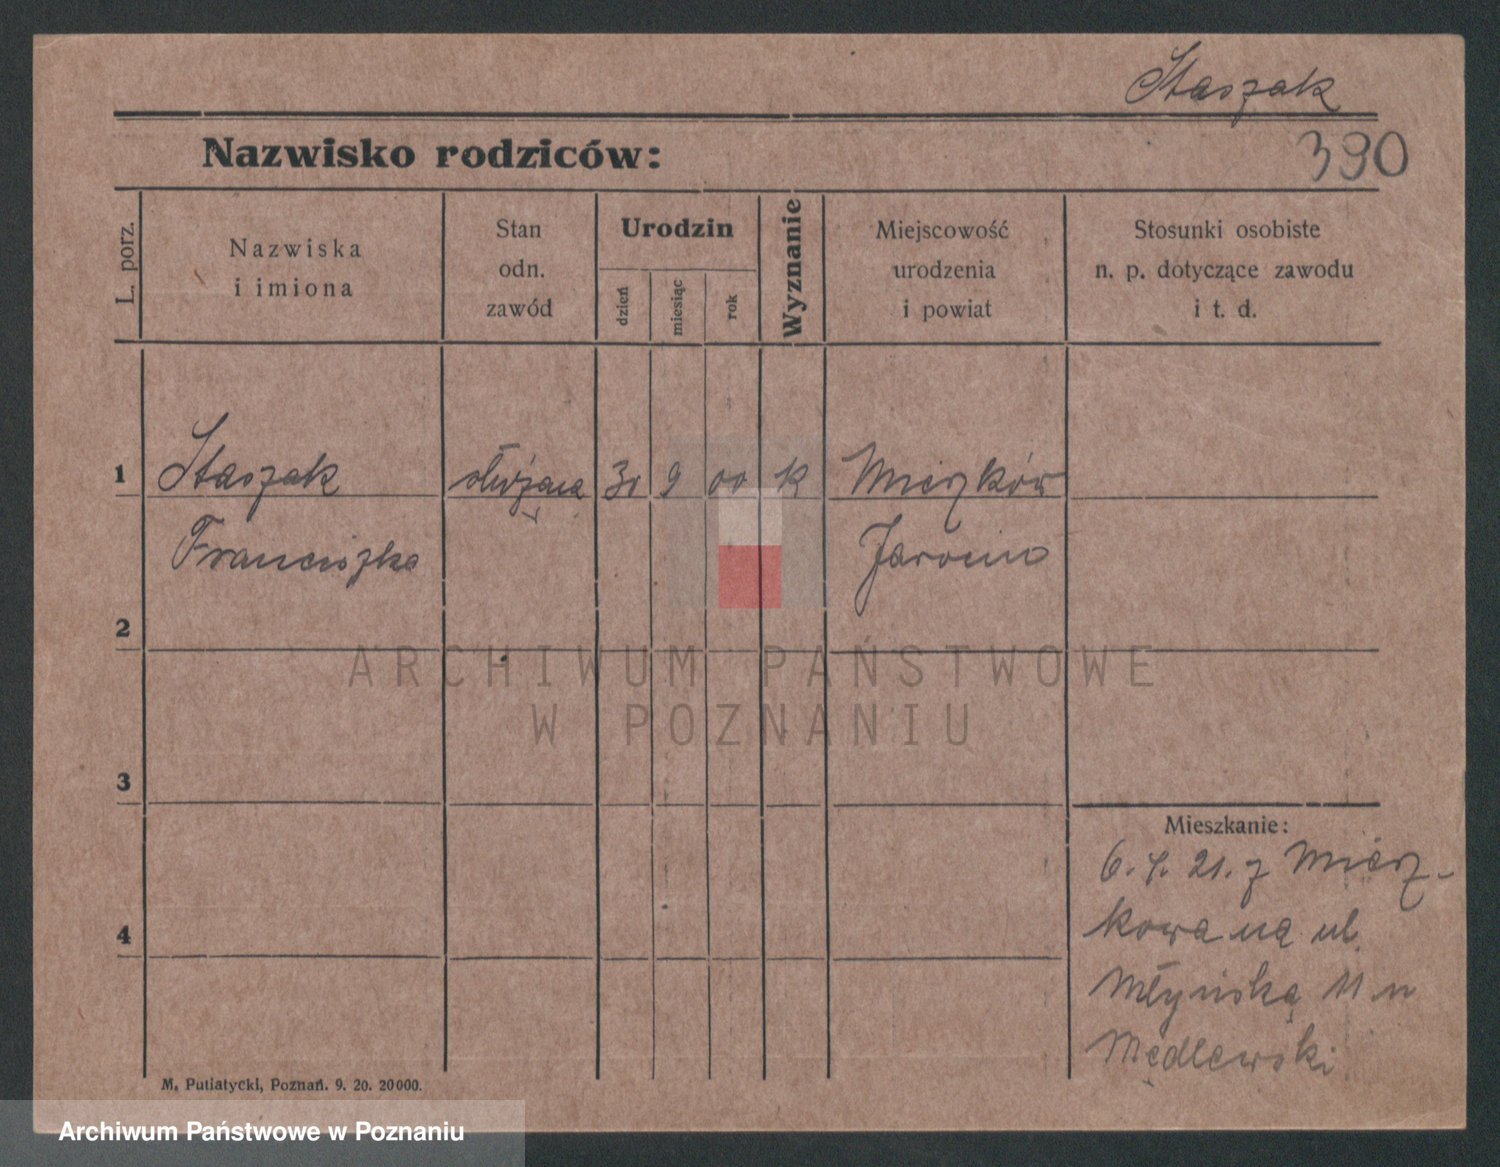 Staszak
Nazwisko rodziców:
390
L. porz.
Nazwiska
i imiona
Stan
odn.
zawód
Urodzin
dzień
miesiąc
rok
Wyznanie
Miejscowość
urodzenia
i powiat
Stosunki osobiste
n. p. dotyczące zawodu
i t. d.
1
Staszak
służąca
30
9
00
K
Mieszków
Franciszka
Jarocin
2
ARCHIWUM PAŃSTWOWE
W POZNANIU
3
Mieszkanie:
6. 4. 21. z Miesz-
kowa na ul.
4
Młyńską 11 u
Medlewski
M. Putiatycki, Poznań. 9. 20. 20000.
Archiwum Państwowe w Poznaniu